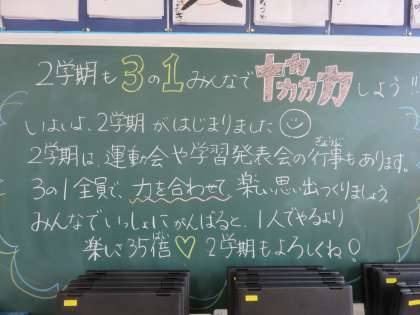 2学期も3の1みんなで協力しよう!!
いよいよ、2学期がはじまりました
2学期は、運動会や学習発表会の行事もあります。
3の1全員で、力を合わせて楽しい思い出つくりましょう。
みんなでいっしょにがんばると、1人でやるより
楽しさ35倍♡2学期もよろしくね!